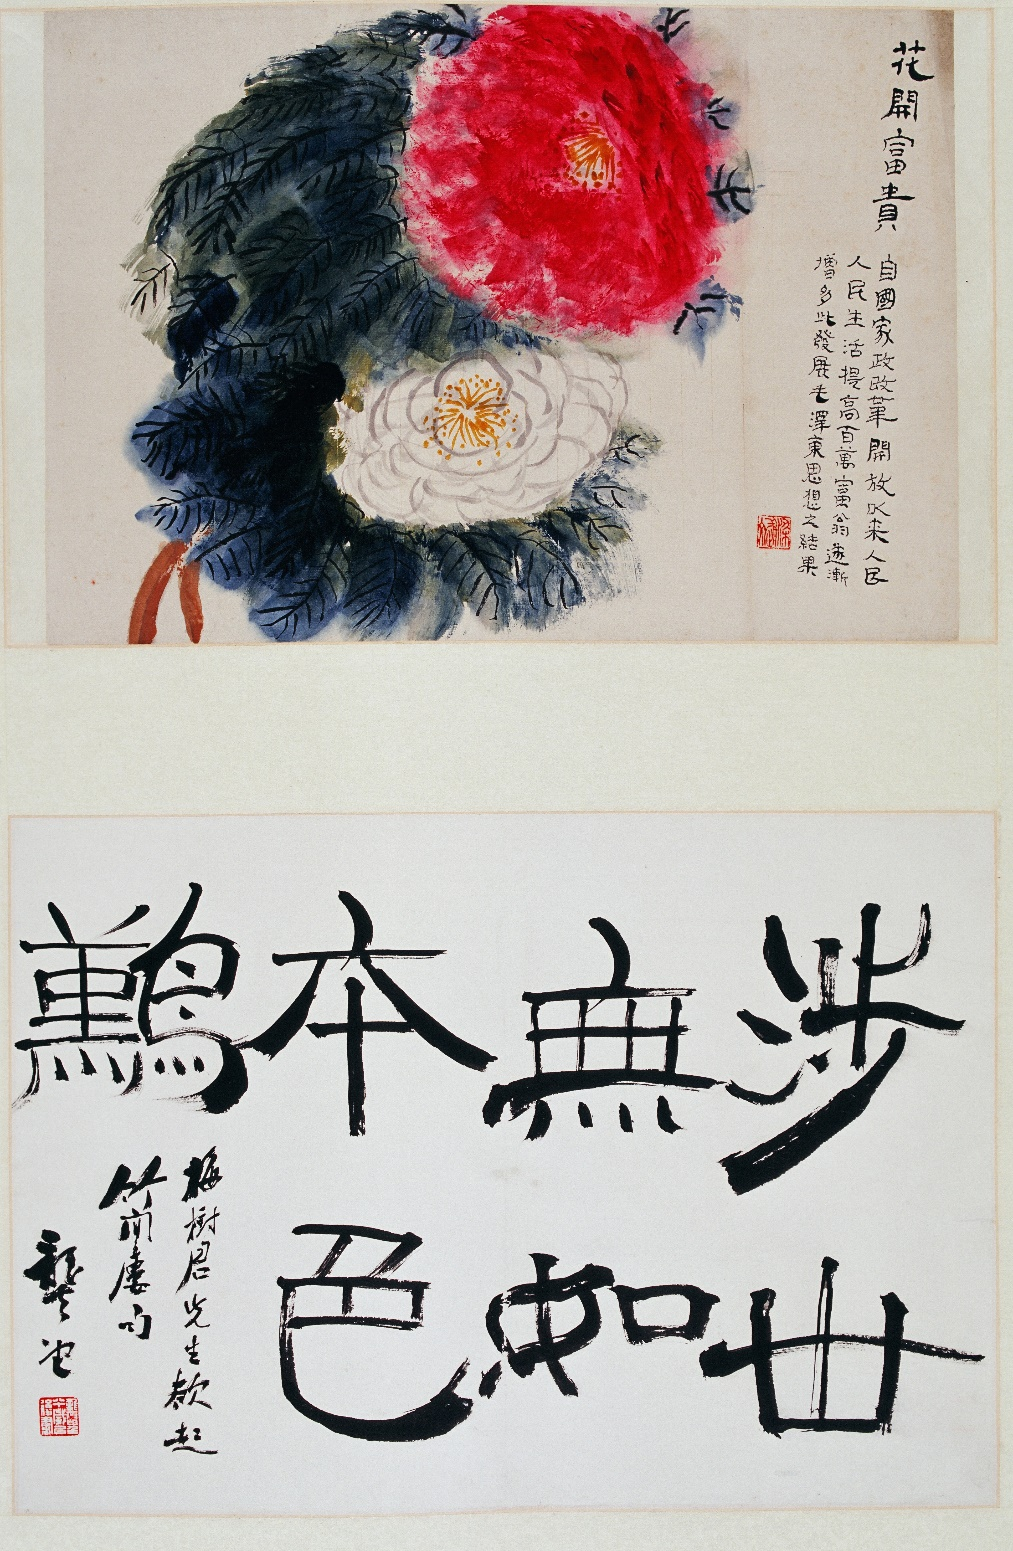 花開富貴
自國家政改革開放以来人民
人民生活提高百萬富翁逐漸
增多此發展毛澤東思想之結果
涉世
無如
本色
難
梅樹君先生欲起
竹間廔句
龔望